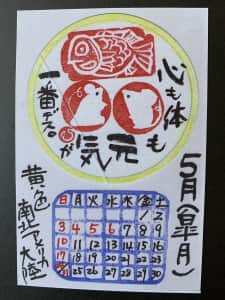 心も体も
元気が
一番
5月(皐月)
黄色
南北アメリカ大陸
日 月 火 水 木 金 土
1 2
3 4 5 6 7 8 9
10 11 12 13 14 15 16
17 18 19 20 21 22 23
24 31 25 26 27 28 29 30